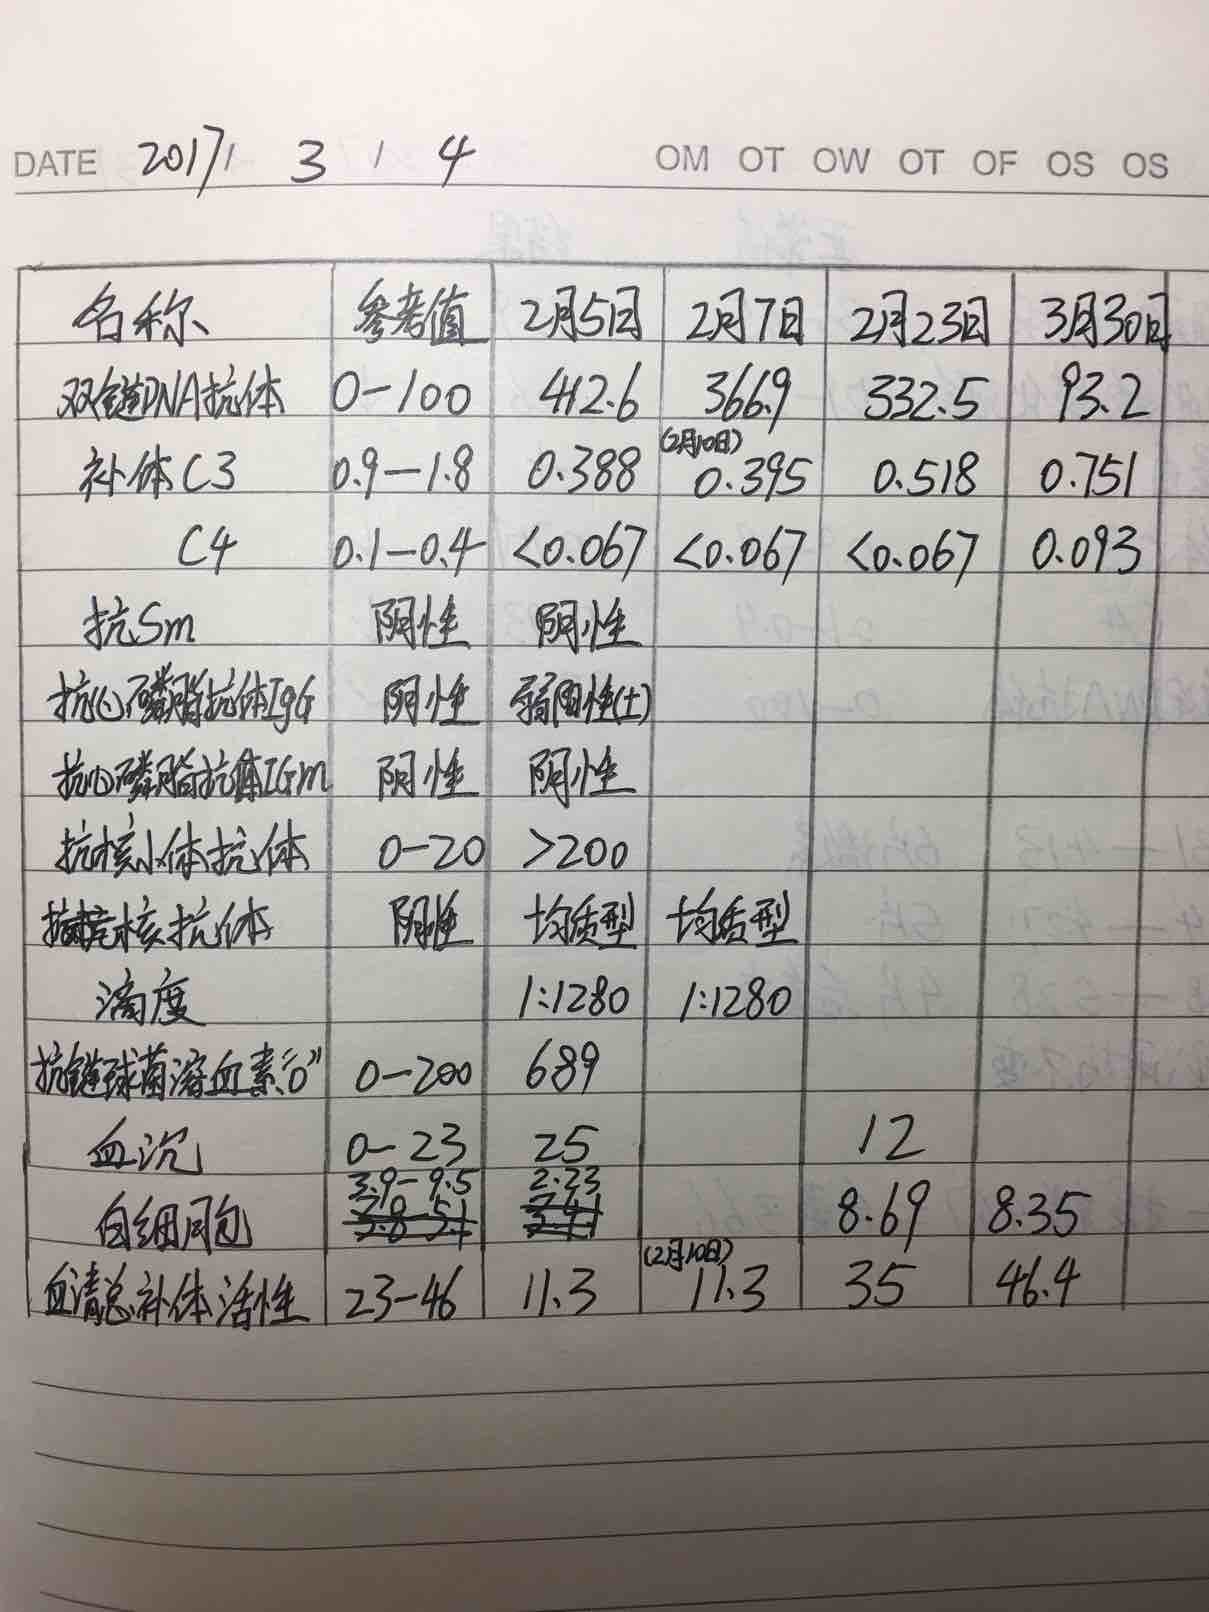 DATE 2017 / 3 / 4 OM OT OW OT OF OS OS
名称 参考值 2月5日 2月7日 2月23日 3月30日
双链DNA抗体 0-100 412.6 366.9 332.5 93.2
补体C3 0.9-1.8 0.388 (2月10日) 0.395 0.518 0.751
C4 0.1-0.4 <0.067 <0.067 <0.067 0.093
抗Sm 阴性 阴性
抗心磷脂抗体IgG 阴性 弱阳性(±)
抗心磷脂抗体IGm 阴性 阴性
抗核小体抗体 0-20 >200
抗核抗体 阴性 均质型 均质型
滴度 1:1280 1:1280
抗链球菌溶血素“O” 0-200 689
血沉 0-23 25 12
白细胞 3.9-9.5 2.23 8.69 8.35
血清总补体活性 23-46 11.3 (2月10日) 11.3 35 46.4